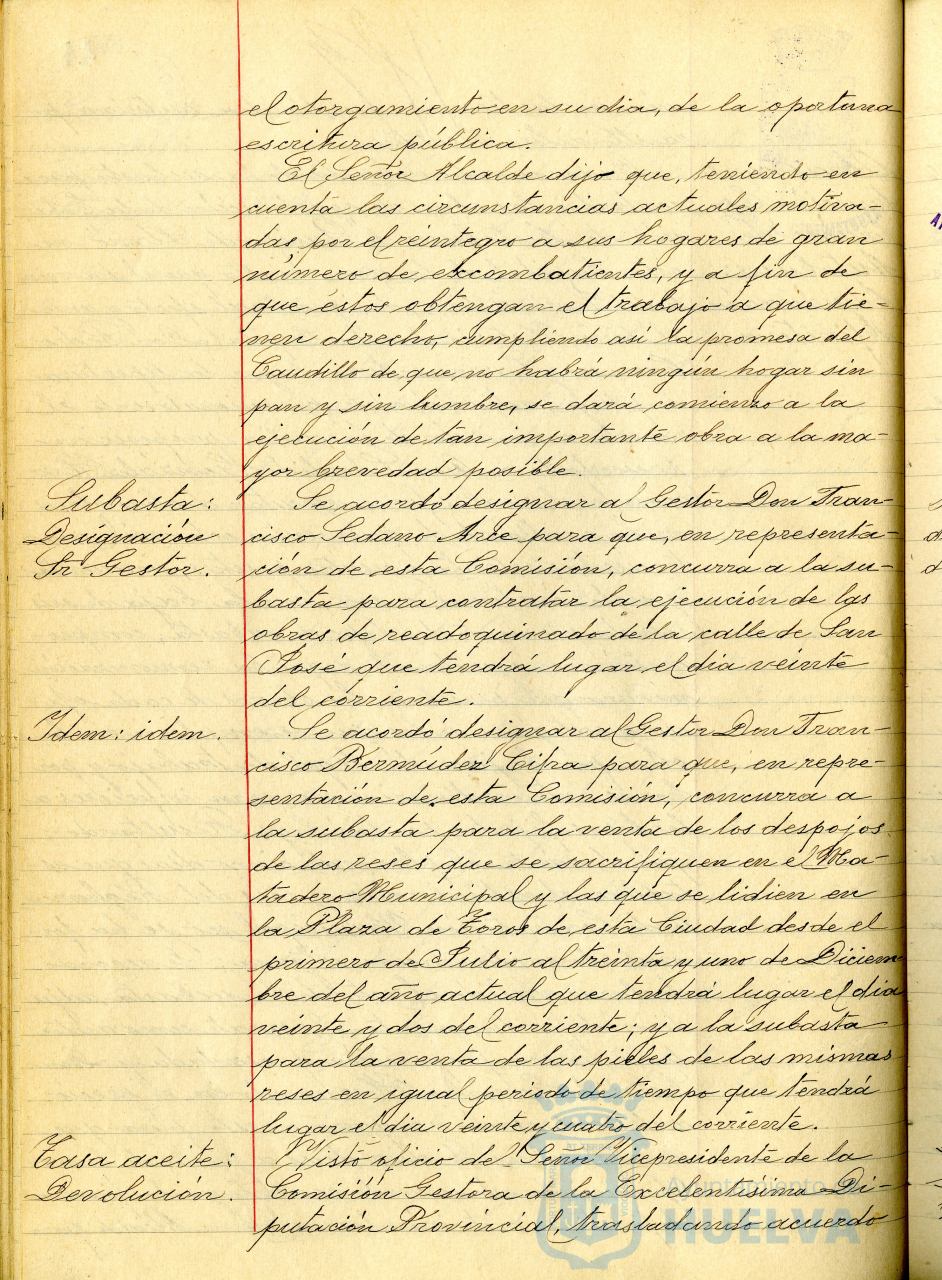 el otorgamiento en su dia, de la oportuna
escritura pública.
El Señor Alcalde dijo que, teniendo en
cuenta las circunstancias actuales motiva-
das por el reintegro a sus hogares de gran
número de excombatientes, y a fin de
que éstos obtengan el trabajo a que tie-
nen derecho, cumpliendo así la promesa del
Caudillo de que no habrá ningún hogar sin
pan y sin lumbre, se dará comienzo a la
ejecución de tan importante obra a la ma-
yor brevedad posible.
Subasta:
Designación
Sr Gestor.
Se acordó designar al Gestor Don Fran-
cisco Sedano Arce para que, en representa-
ción de esta Comisión, concurra a la su-
basta para contratar la ejecución de las
obras de readoquinado de la calle de San
José que tendrá lugar el dia veinte
del corriente.
Idem: idem.
Se acordó designar al Gestor Don Fran-
cisco Bermúdez Cifra para que, en repre-
sentación de esta Comisión, concurra a
la subasta para la venta de los despojos
de las reses que se sacrifiquen en el Ma-
tadero Municipal y las que se lidien en
la Plaza de Toros de esta Ciudad desde el
primero de Julio al treinta y uno de Diciem-
bre del año actual que tendrá lugar el dia
veinte y dos del corriente; y a la subasta
para la venta de las pieles de las mismas
reses en igual periodo de tiempo que tendrá
lugar el dia veinte y cuatro del corriente.
Tasa aceite:
Devolución.
Visto oficio del Señor Vicepresidente de la
Comisión Gestora de la Excelentísima Di-
putación Provincial, trasladando acuerdo
Ayuntamiento de
HUELVA